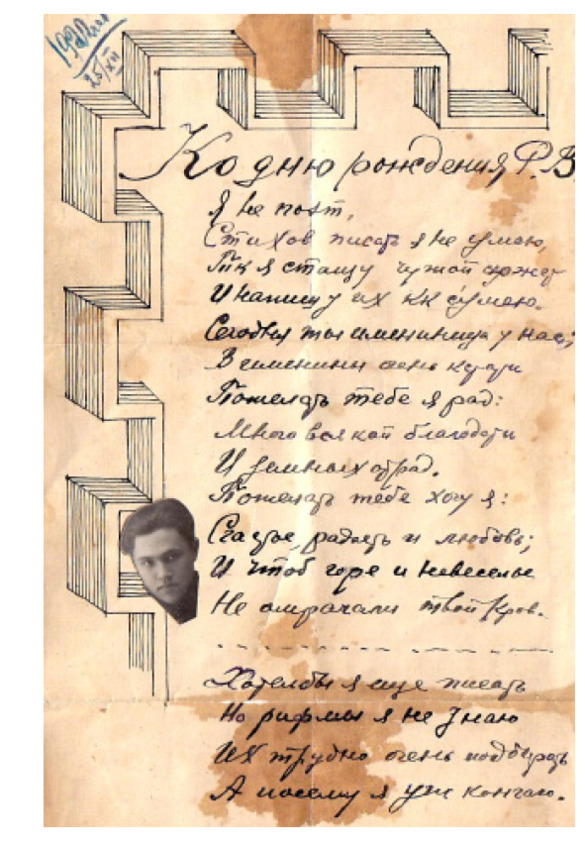 25/XII
Ко дню рождения Р.В
Я не поэт,
Стихов писать я не умею,
Тк я стащу чужой
И напишу их кк сумею.
Сегодня ты имениница у нас;
В именины день
Пожелать тебе я рад:
Много всякой благодати
И земных отрад.
Пожелать тебе хочу я:
Счастье, радость и любовь;
И чтоб горе и невеселье
Не омрачали твой кров.
Хотел бы я еще писать
Но рифмы я не знаю
Их трудно очень подбирать
А посему я уж кончаю.